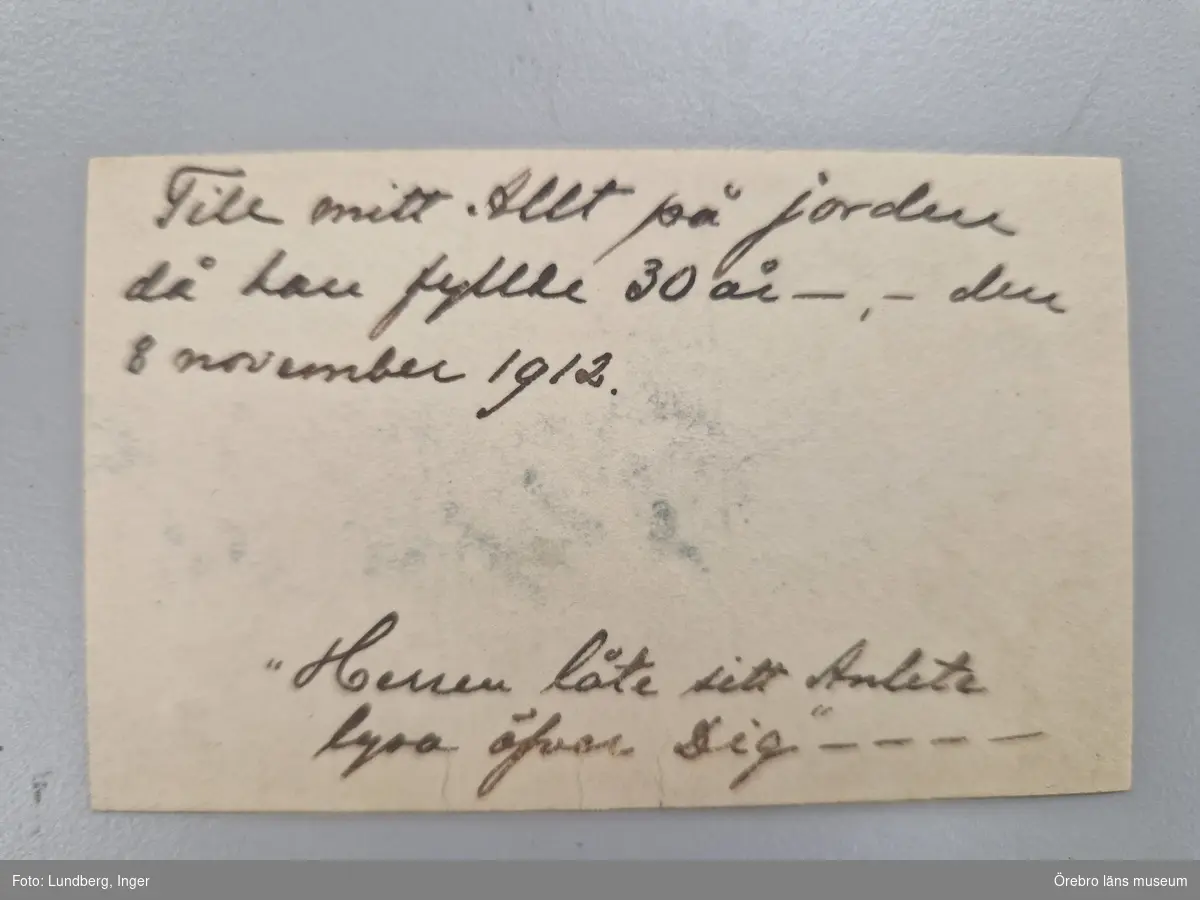 Till mitt Allt på jorden
då han fyllde 30 år —,— den
8 november 1912.
"Herren låte sitt Anlete
lysa öfver Dig" — — — —
Foto: Lundberg, Inger
Örebro läns museum